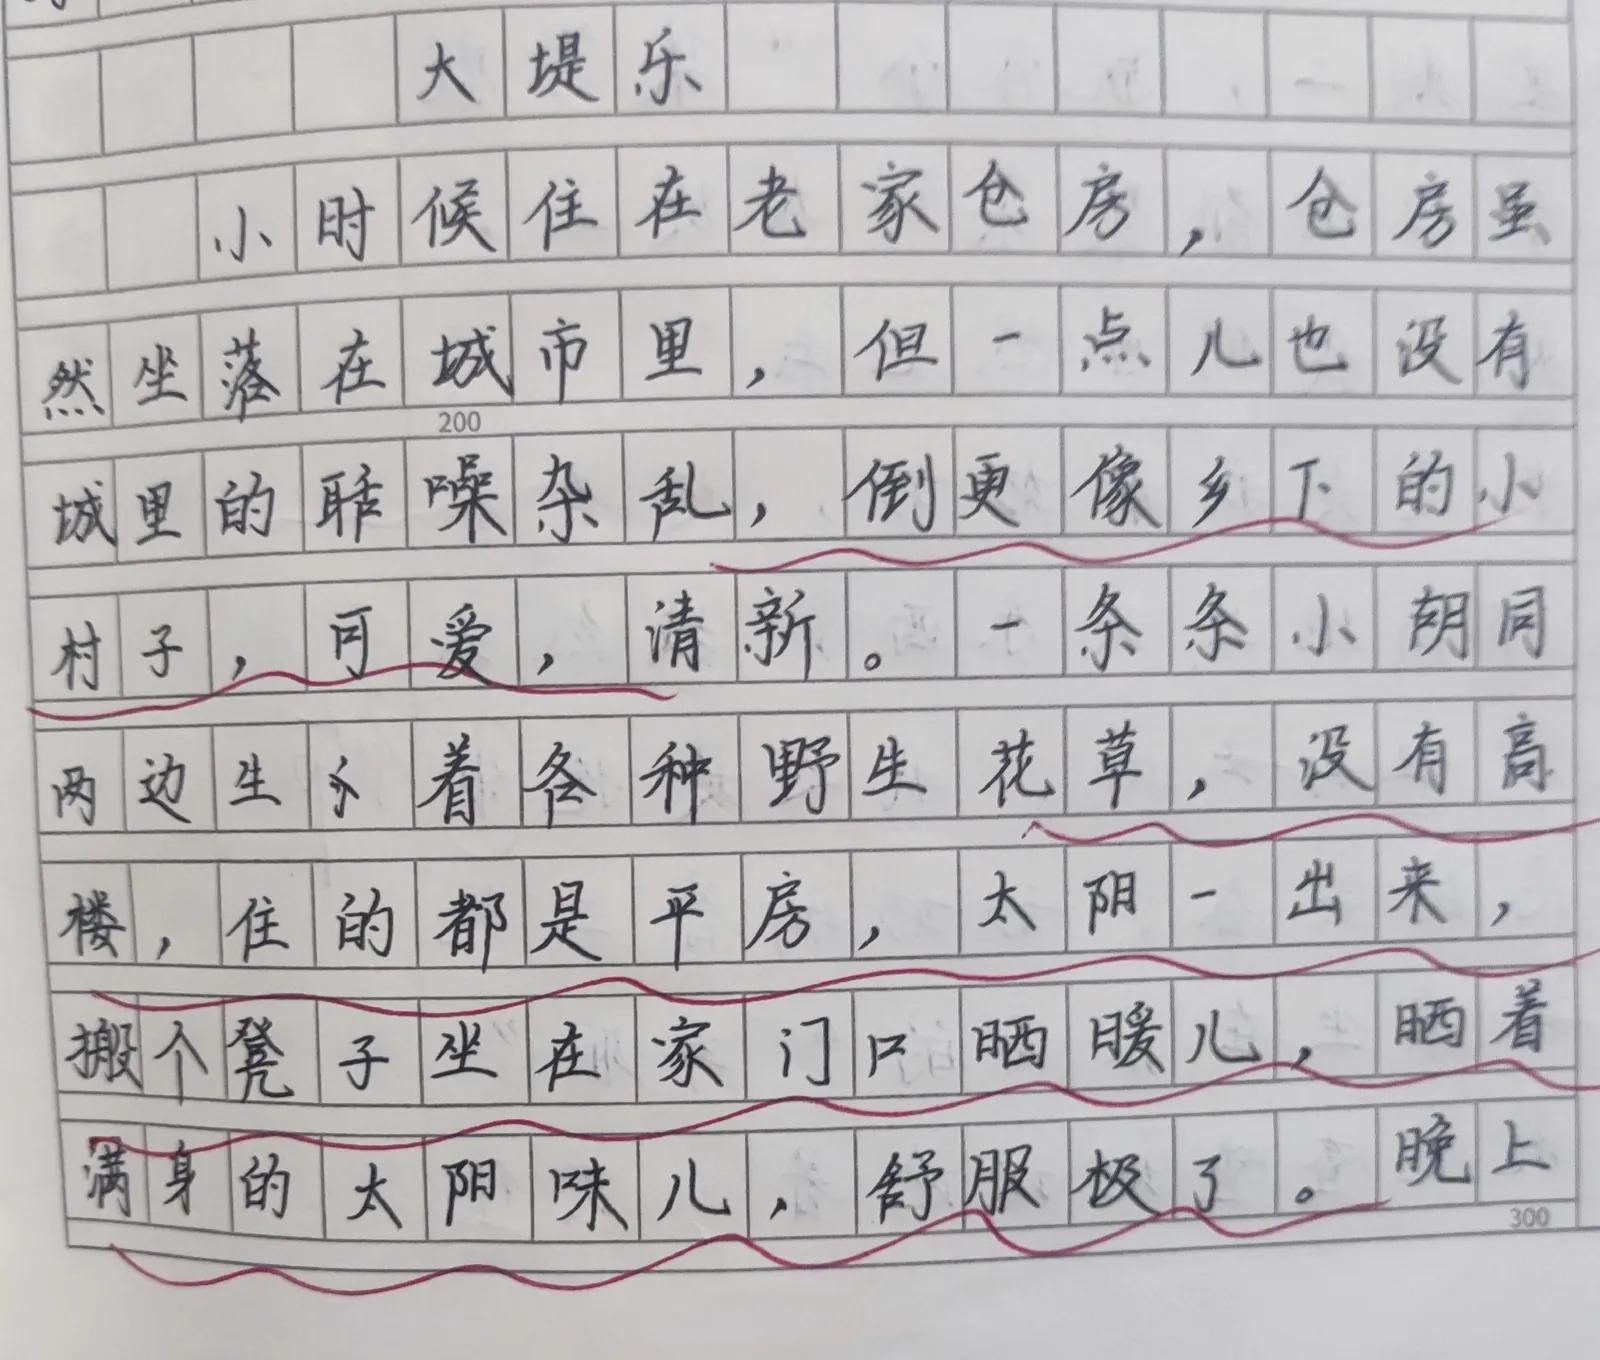 大堤乐
小时候住在老家仓房，仓房虽
然坐落在城市里，但一点儿也没有
200
城里的聒噪杂乱，倒更像乡下的小
村子，可爱，清新。一条条小胡同
两边生着各种野生花草，没有高
楼，住的都是平房，太阳一出来，
搬个凳子坐在家门口晒暖儿，晒着
满身的太阳味儿，舒服极了。晚上
300